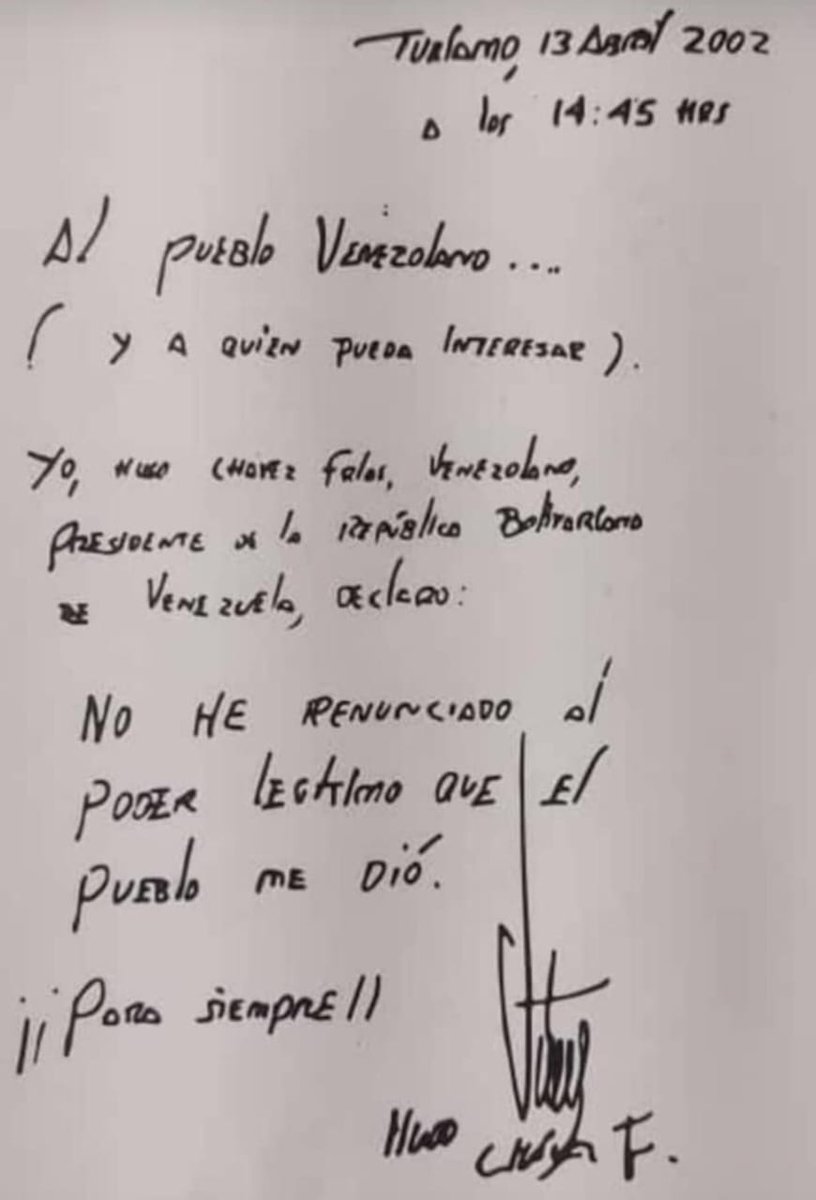 Turiamo, 13 Abril 2002
a las 14:45 HRS
Al pueblo Venezolano....
( y a quien pueda interesar ).
Yo, Hugo Chavez Frias, Venezolano,
Presidente de la República Bolivariana
de Venezuela, declaro:
NO HE RENUNCIADO al
PODER legitimo QUE El
PUEBlo ME DIÓ.
¡¡Para siempre!!
Hugo Chávez F.